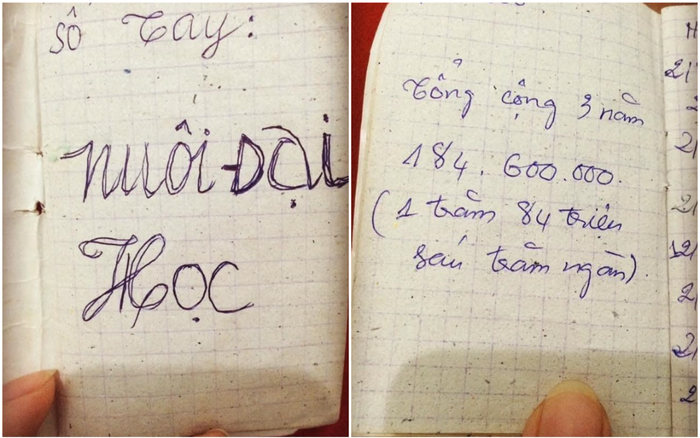 Sổ Tay:
NUÔI ĐẠI
HỌC
Tổng cộng 3 năm
184.600.000.
(1 trăm 84 triệu
sáu trăm ngàn).